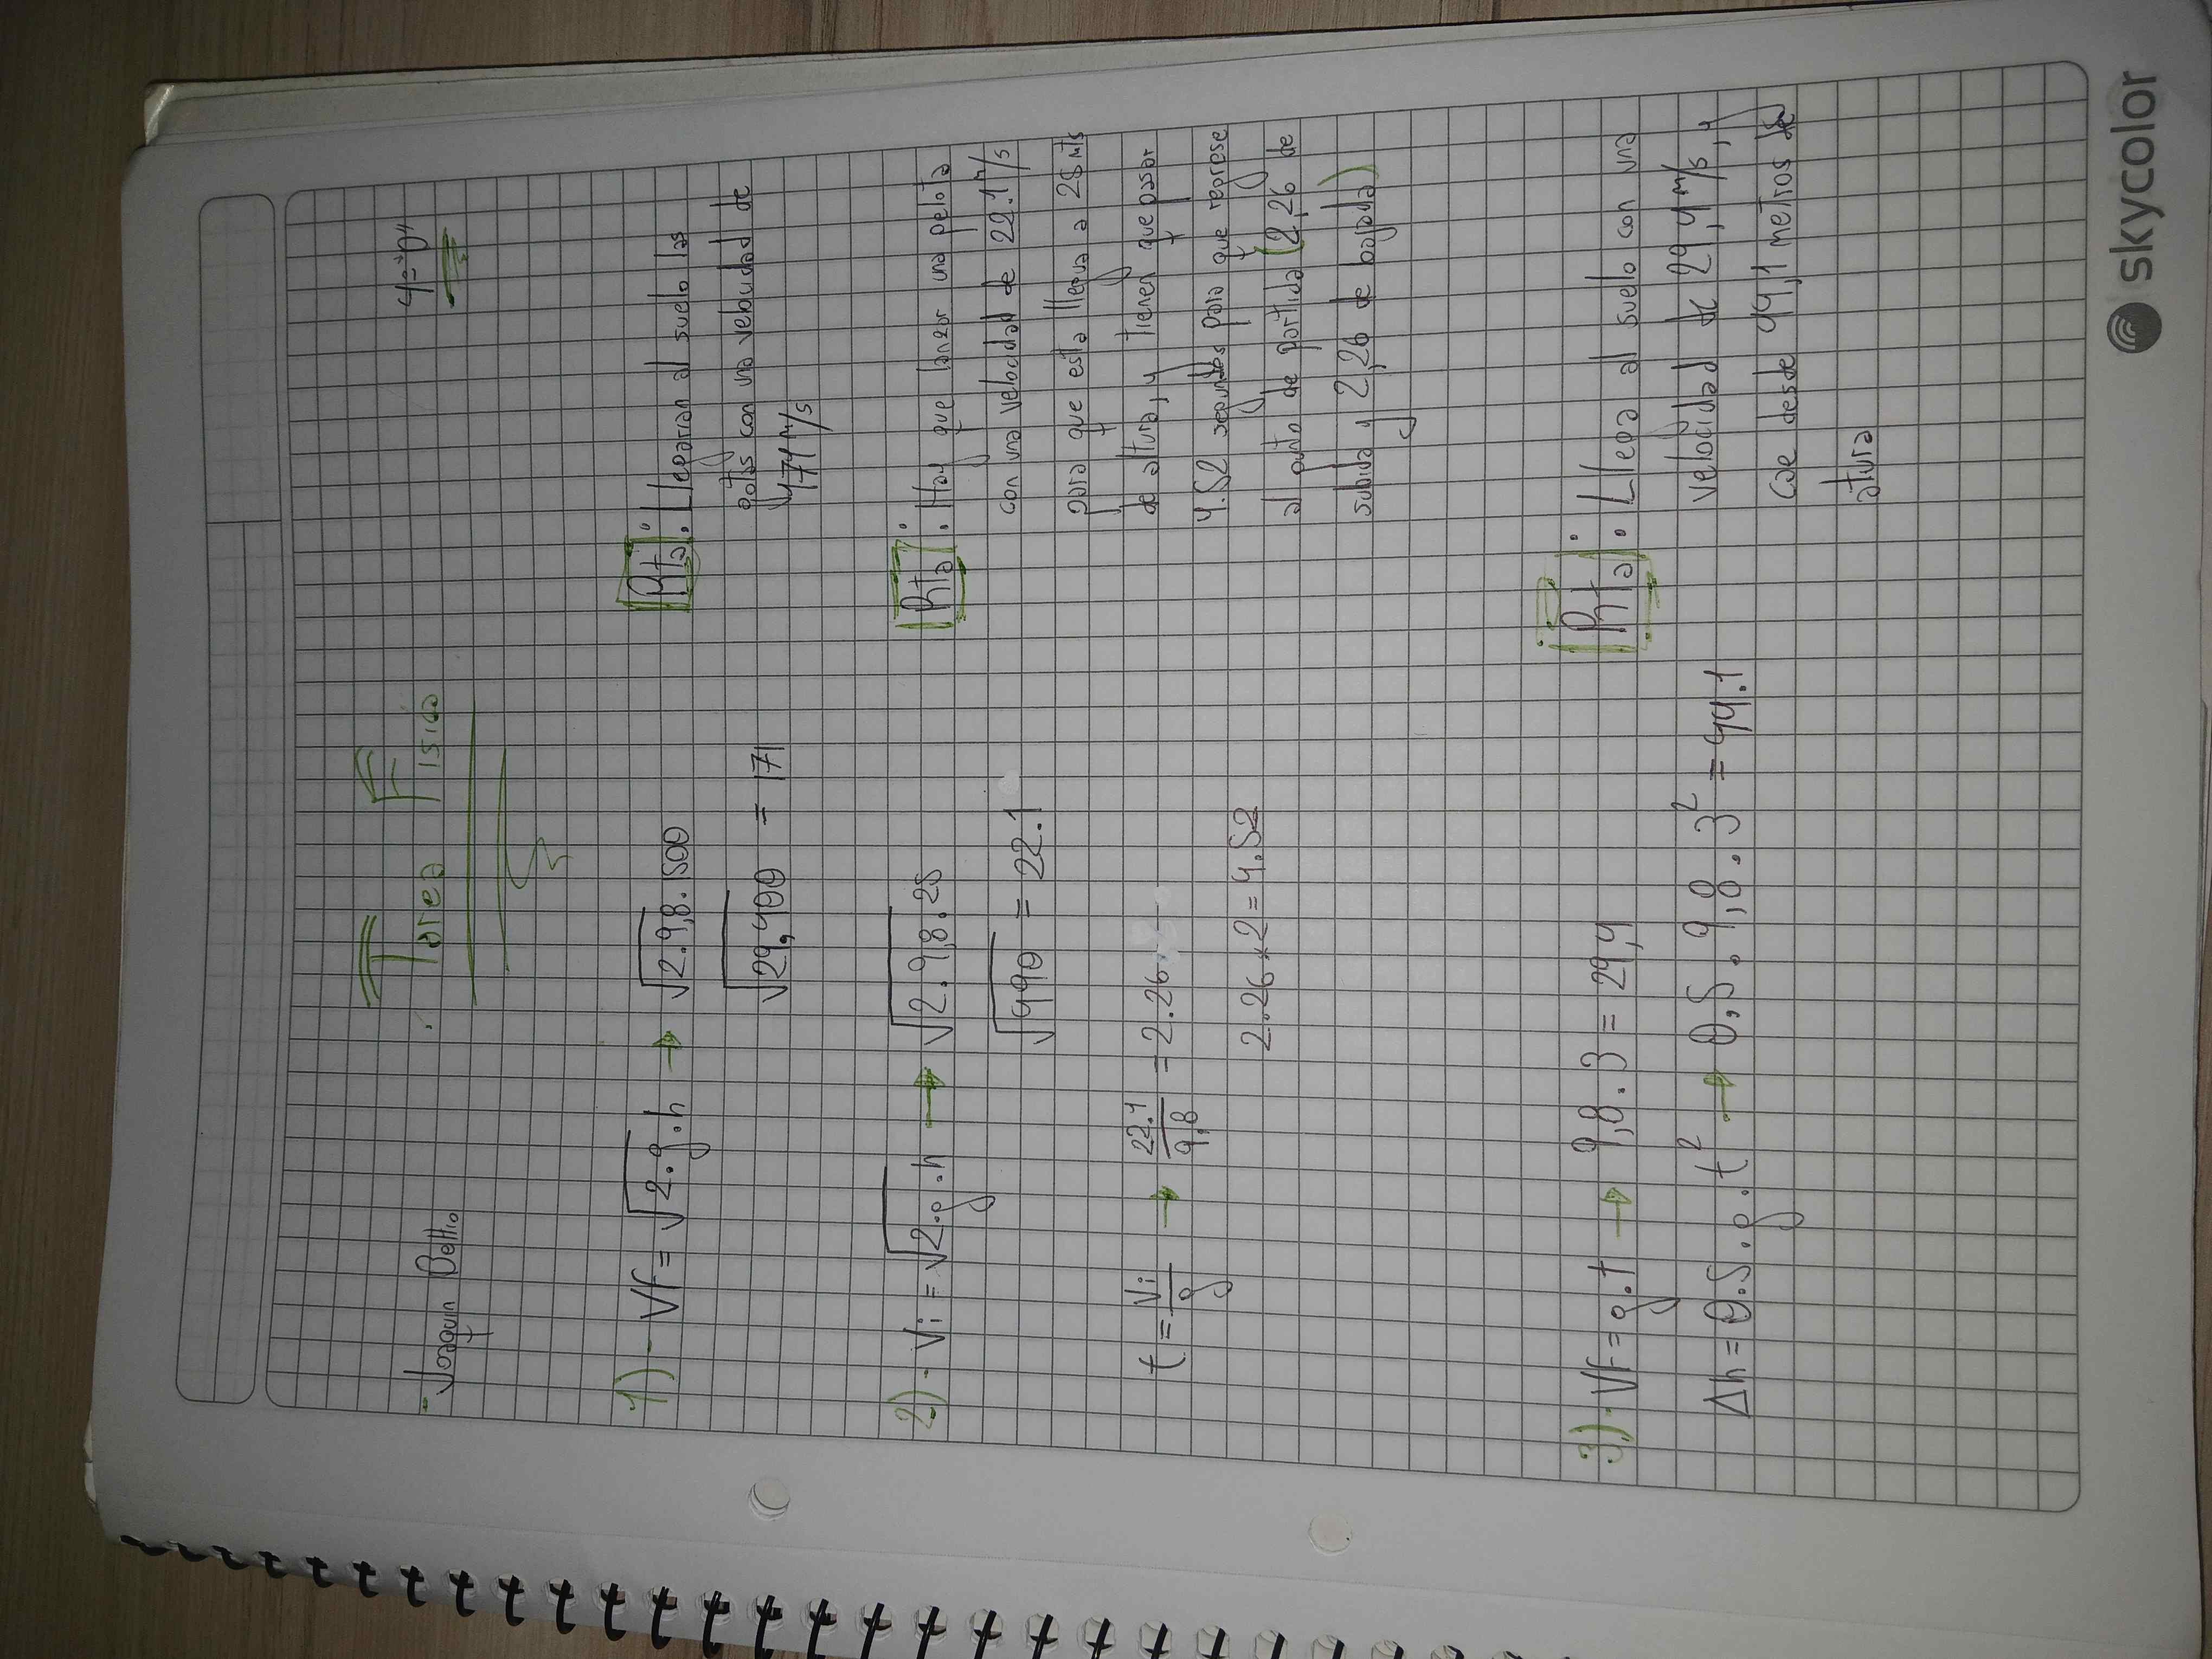 - Joaquin Bettio
Tarea Fisica
4="D"
1)- Vf = √2.g.h → √2.9,8.1500
√29,400 = 171
Rta: Llegarian al suelo las
gotas con una velocidad de
171 m/s
2)- Vi = √2.g.h → √2.9,8.25
√490 = 22.1
t = Vi/g → 22.1/9,8 = 2.26
2.26 x 2 = 4.52
Rta: Hay que lanzar una pelota
con una velocidad de 22.1 m/s
para que esta llegue a 25 mts
de altura, y tienen que pasar
4.52 segundos para que regrese
al punto de partida (2,26 de
subida y 2,26 de bajada)
3)- Vf = g.t → 9,8.3 = 29,4
Δh = 0.5.g.t² → 0,5.9,8.3² = 44.1
Rta: Llega al suelo con una
velocidad de 29,4 m/s, y
cae desde 44,1 metros de
altura
skycolor